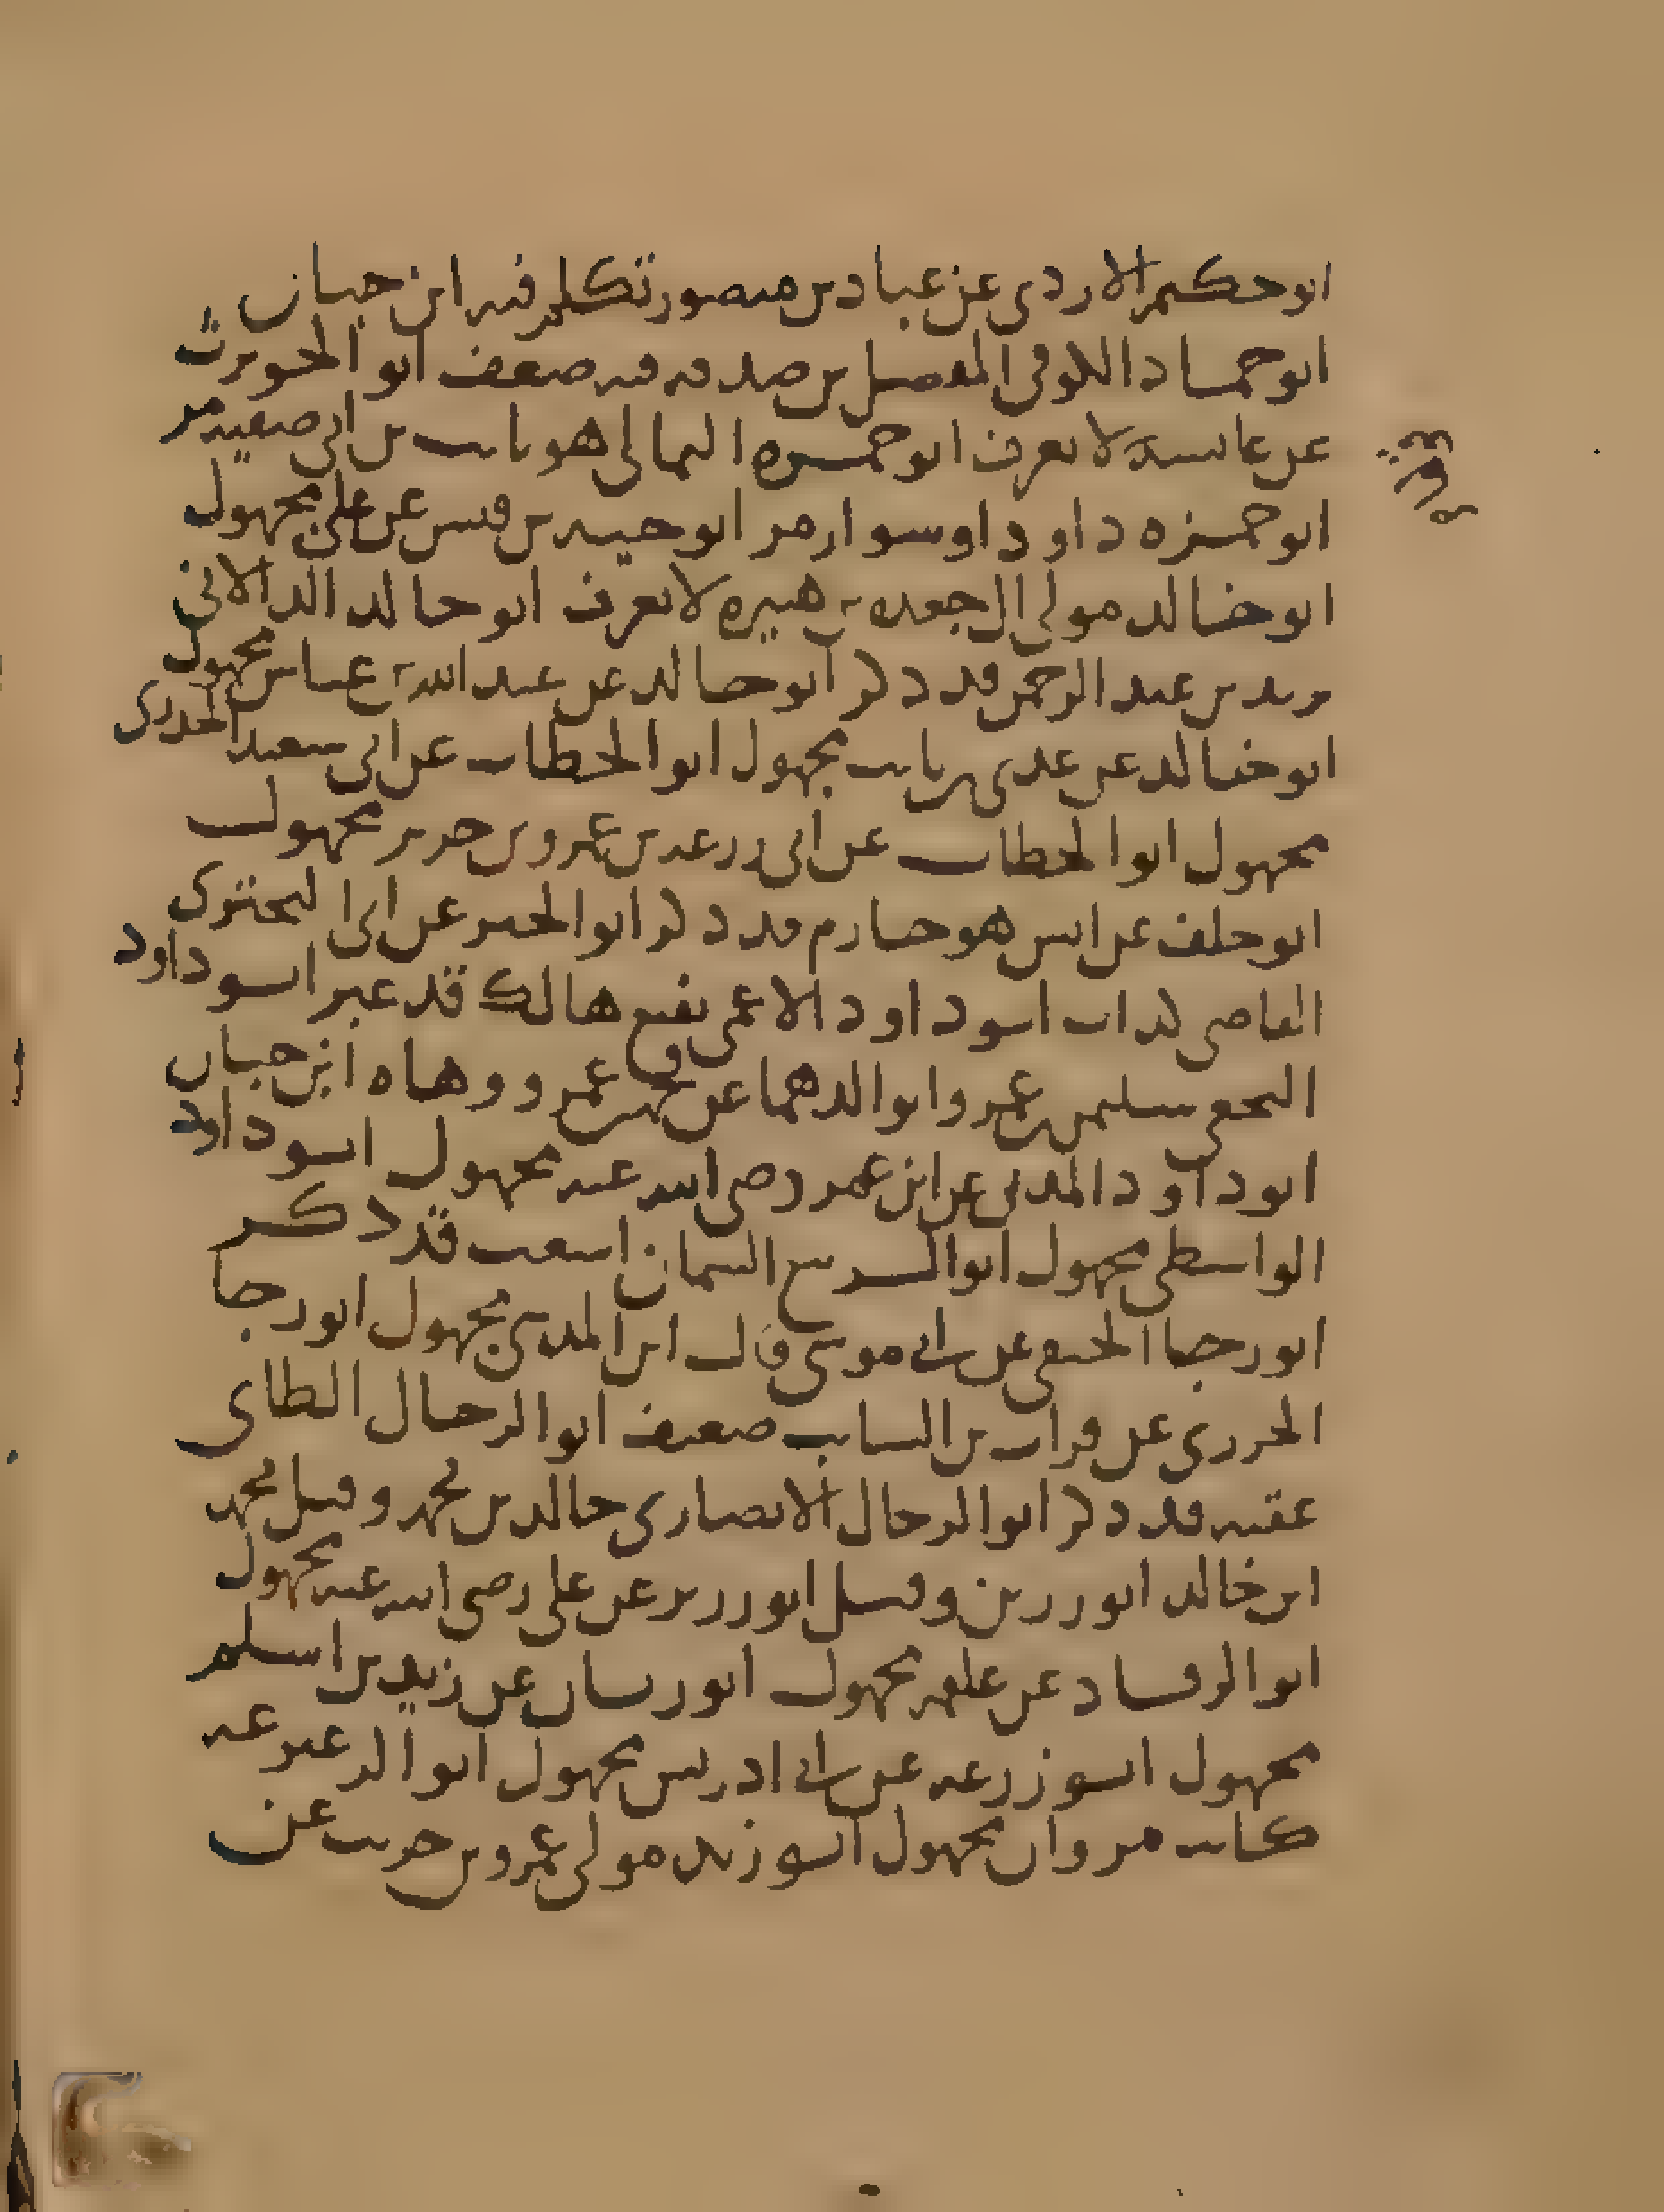 ابو حكيم الازدي عن عباد بن منصور تكلم فيه ابن حبان
ابو حماد الكوفي المفضل بن صدقه فيه ضعف ابو الحويرث
عن عائشة لا يعرف ابو حمزه الثمالي هو ثابت بن ابي صفيه مر
ابو حمزه داود او سوار مر ابو حيه بن قيس عن علي مجهول
ابو خالد مولى ال جعده بن هبيره لا يعرف ابو خالد الدالاني
يزيد بن عبد الرحمن قد ذكر ابو خالد عن عبد الله بن عباس مجهول
ابو خالد عن عدي بن ثابت مجهول ابو الخطاب عن ابي سعيد الخدري
مجهول ابو الخطاب عن ابي زرعه بن عمرو بن جرير مجهول
ابو خلف عن انس هو حازم قد ذكر ابو الخير عن ابي البختري
القاضي كذاب ابو داود الاعمى نفيع هالك قد عبر ابو داود
النخعي سليمن بن عمرو ابو الدهماء عن محمد بن عمرو وهاه ابن حبان
ابو داود المدني عن ابن عمر رضي الله عنه مجهول ابو داود
الواسطي مجهول ابو الربيع السمان اشعث قد ذكر
ابو رجا الحنفي عن ابي موسى قال ابن المديني مجهول ابو رجا
الجزري عن فرات بن السايب ضعيف ابو الرحال الطاى
عقبه قد ذكر ابو الرحال الانصاري خالد بن محمد وقيل محمد
ابن خالد ابو رزين وقيل ابو زرير عن علي رضي الله عنه مجهول
ابو الرقاد عن علقمه مجهول ابو ريسان عن زيد بن اسلم
مجهول ابو زرعه عن ابي ادريس مجهول ابو الزعيزعه
كاتب مروان مجهول ابو زيد مولى عمرو بن حريث عن